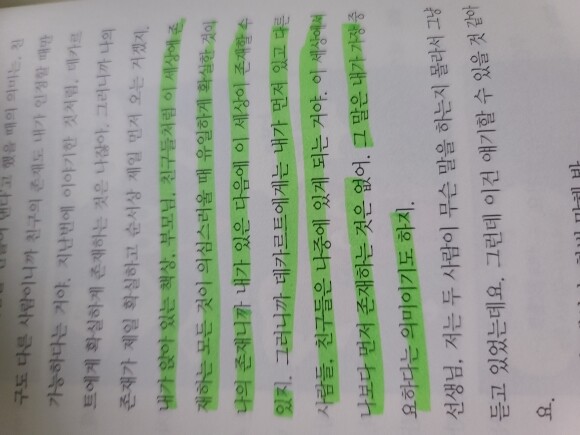 구도 다른 사람이니까 친구의 존재도 내가 인정할 때만
가능하다는 거야. 지난번에 이야기한 것처럼, 데카르
트에게 확실하게 존재하는 것은 나잖아. 그러니까 나의
존재가 제일 확실하고 순서상 제일 먼저 오는 거겠지.
내가 앉아 있는 책상, 부모님, 친구들처럼 이 세상에 존
재하는 모든 것이 의심스러울 때 유일하게 확실한 것이
나의 존재니까 내가 있은 다음에 이 세상이 존재할 수
있지. 그러니까 데카르트에게는 내가 먼저 있고 다른
사람들, 친구들은 나중에 있게 되는 거야. 이 세상에서
나보다 먼저 존재하는 것은 없어. 그 말은 내가 가장 중
요하다는 의미이기도 하지.
선생님, 저는 두 사람이 무슨 말을 하는지 몰라서 그냥
듣고 있었는데요. 그런데 이젠 얘기할 수 있을 것 같아
요.